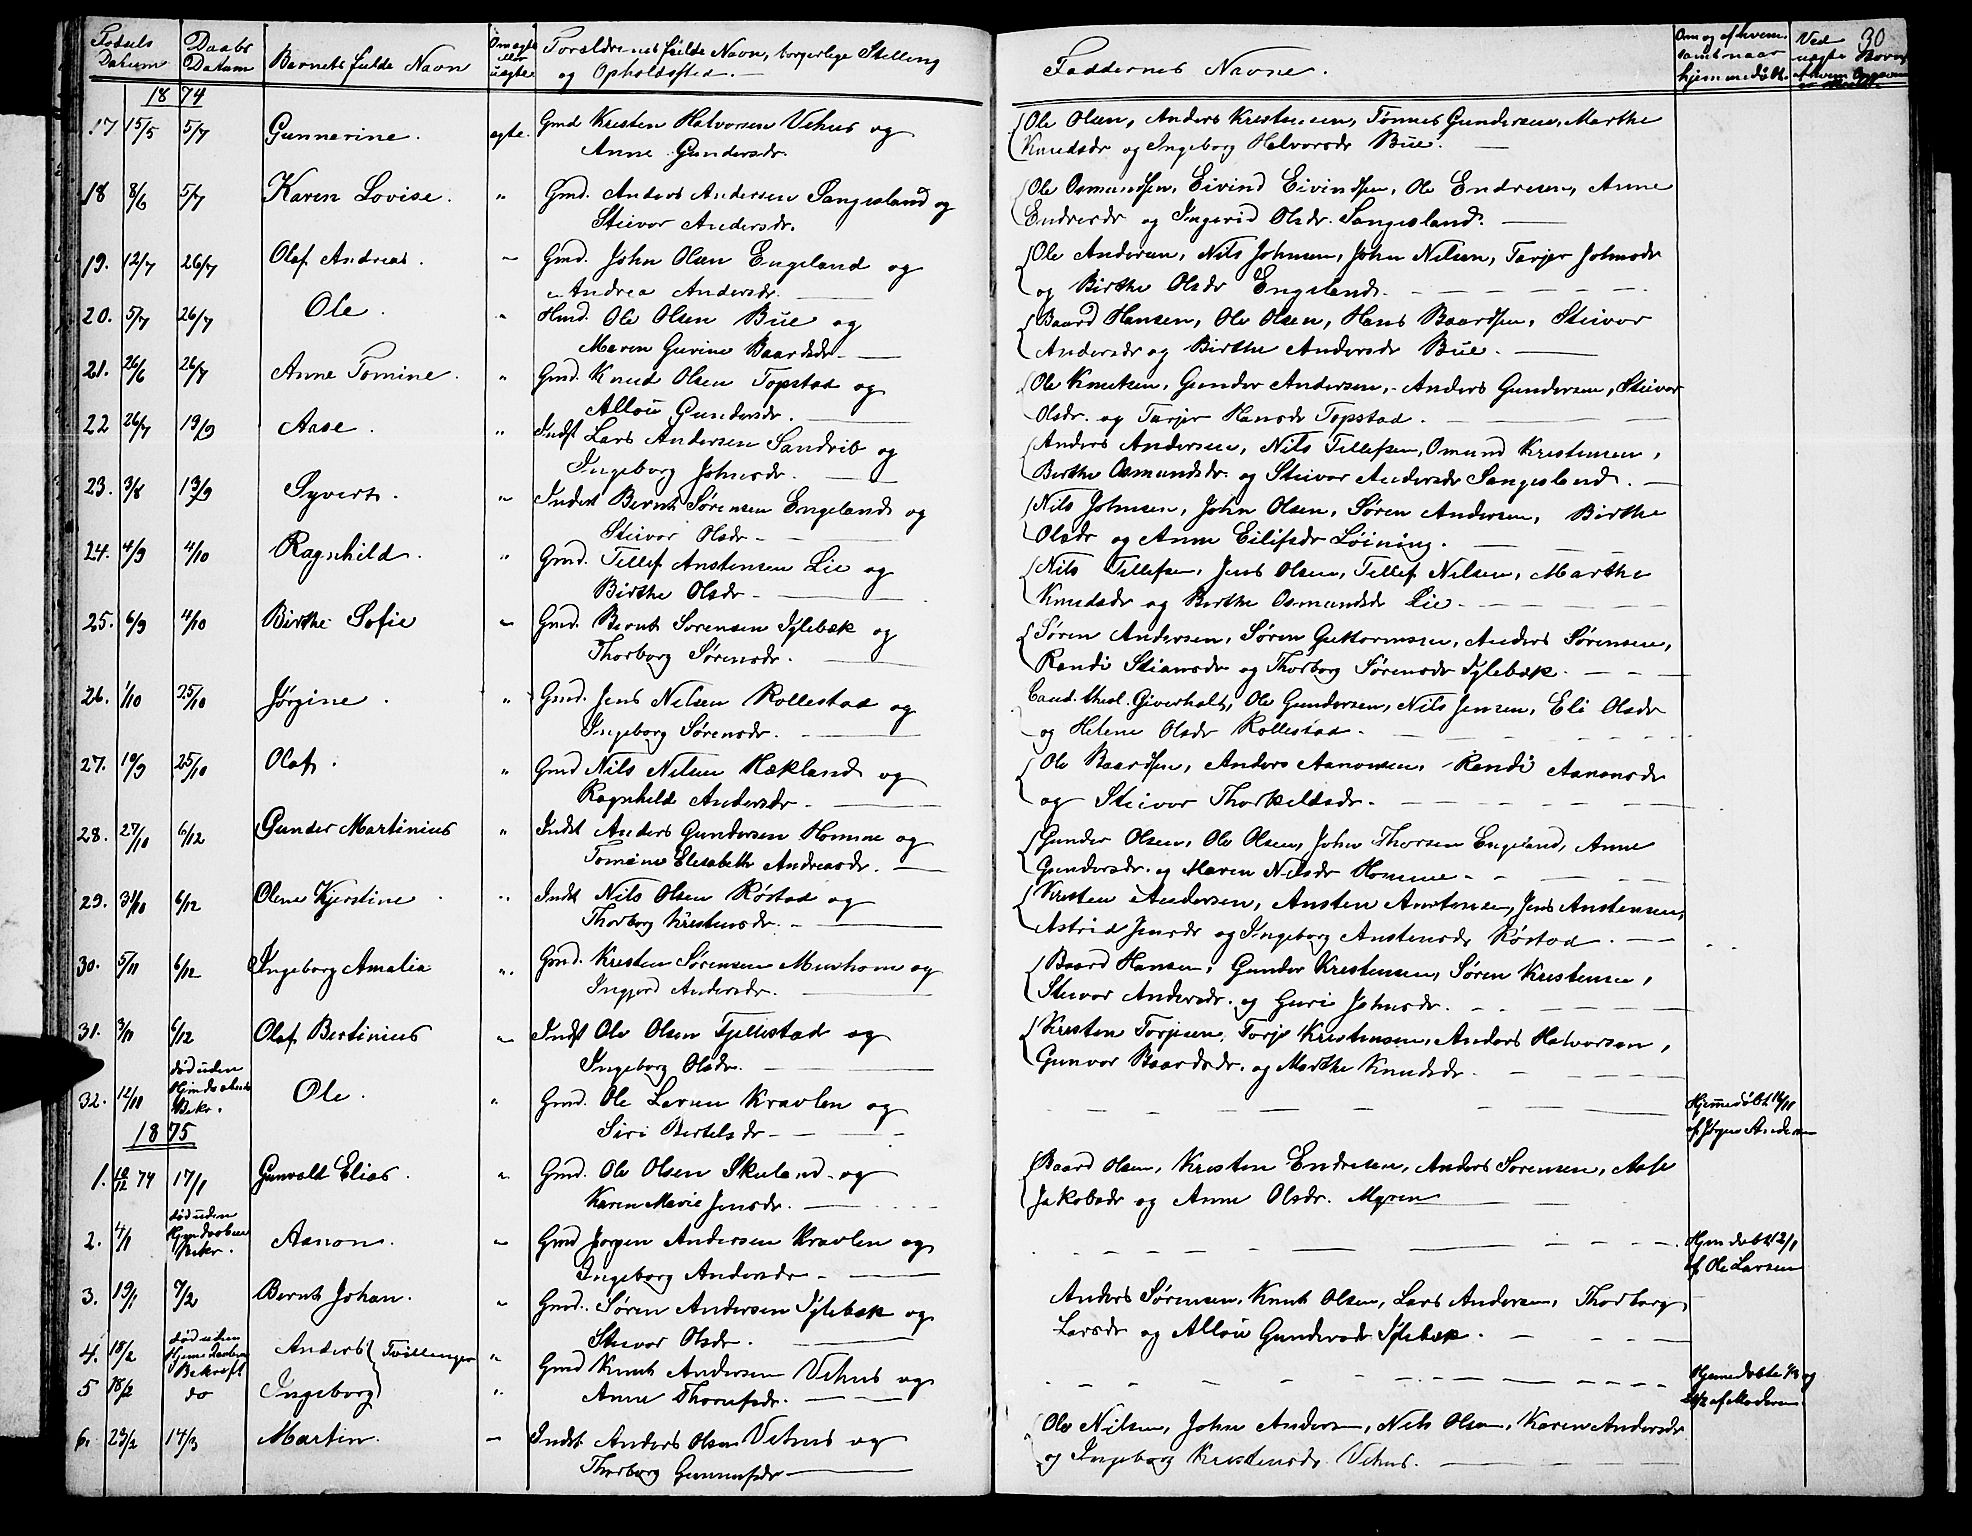 Fødsels Datum | Daabs Datum | Barnets fulde Navn | Om ægte eller uægte | Forældrenes fulde Navn, borgerlige Stilling og Opholdssted. | Faddernes Navne. | Om og af hvem samt naar hjemmedøbt. | Ved uægte Børn 30
1874
17 15/5 5/7 Gunnerine. ægte. Gmd Kristen Halvorsen Vehus og Ole Olsen, Anders Kristensen, Tønnes Gundersen, Marthe
Anne Gundersdr. Knudsdr og Ingeborg Halvorsdr Bue.
18 8/6 5/7 Karen Lovise. " Gmd. Anders Andersen Sangesland og Ole Osmundsen, Eivind Eivindsen, Ole Endresen, Anne
Stivor Andersdr. Endresdr og Ingerid Olsdr. Sangesland.
19. 12/7 26/7 Olaf Andreas. " Gmd. John Olsen Engeland og Ole Andersen, Nils Johnsen, John Nilsen, Tarjer Johnsdr
Andrea Andersdr. og Birthe Olsdr Engeland.
20. 5/7 26/7 Ole. " Hmd. Ole Olsen Bue og Baard Hansen, Ole Olsen, Hans Baardsen, Stivor
Maren Gurine Baardsdr. Andersdr og Birthe Andersdr Bue.
21. 26/6 26/7 Anne Tomine. " Gmd. Knud Olsen Topstad og Ole Knutsen, Gunder Andersen, Anders Gundersen, Stivor
Allou Gundersdr. Olsdr. og Tarjer Hansdr Topstad.
22 26/7 13/9 Aase. " Indst Lars Andersen Sandvib og Anders Andersen, Nils Tellefsen, Osmund Kristensen,
Ingeborg Johnsdr. Birthe Osmundsdr. og Stivor Andersdr Sangesland.
23. 3/8 13/9 Syvert. " Inderst Bernt Sørensen Engeland og Nils Johnsen, John Olsen, Søren Andersen, Birthe
Stivor Olsdr. Olsdr og Anne Eilifsdr Løining.
24. 4/9 4/10 Ragnhild. " Gmd. Tellef Anstensen Lie og Nils Tellefsen, Jens Olsen, Tellef Nilsen, Marthe
Birthe Olsdr. Knudsdr og Birthe Osmundsdr Lie.
25. 6/9 4/10 Birthe Sofie " Gmd. Bernt Sørensen Iglebæk og Søren Andersen, Søren Guttormsen, Anders Sørensen,
Thorborg Sørensdr. Randi Stiansdr og Thorborg Sørensdr Iglebæk.
26. 1/10 25/10 Jørgine. " Gmd. Jens Nilsen Rollestad og Cand. theol. Giverholt, Ole Gundersen, Nils Jensen, Eli Olsdr
Ingeborg Sørensdr. og Helene Olsdr Rollestad.
27. 19/9 25/10 Olaf. " Gmd Nils Nilsen Hækland og Ole Baardsen, Anders Aanonsen, Randi Aanonsdr
Ragnhild Andersdr. og Stivor Thorkildsdr.
28. 27/10 6/12 Gunder Martinius " Indst Anders Gundersen Homme og Gunder Olsen, Ole Olsen, John Thorsen Engeland, Anne
Tomine Elisabeth Andreasdr. Gundersdr. og Maren Nilsdr Homme.
29. 31/10 6/12 Olene Kjerstine. " Indst Nils Olsen Røstad og Kristen Andersen, Ansten Anstensen, Jens Anstensen,
Thorborg Kristensdr. Astrid Jensdr og Ingeborg Anstensdr Røstad.
30. 5/11 6/12 Ingeborg Amalia " Gmd. Kristen Sørensen Murhom og Baard Hansen, Gunder Kristensen, Søren Kristensen,
Ingjerd Andersdr. Stivor Andersdr. og Guri Johnsdr.
31. 3/11 6/12 Olaf Bertinius " Indst Ole Olsen Fjellestad og Kristen Torjesen, Torje Kristensen, Anders Halvorsen,
Ingeborg Olsdr. Gunvor Baardsdr. og Marthe Knudsdr.
32. 12/11 død uden Hjemdaabens Bekr. Ole. " Gmd. Ole Larsen Kravlen og Hjemmedøbt 14/11
Siri Bertelsdr. af Jørgen Andersen
1875
1. 10/12 74 17/1 Gunvald Elias. " Gmd. Ole Olsen Skuland og Baard Olsen, Kristen Endresen, Anders Sørensen, Aase
Karen Marie Jensdr. Jakobsdr og Anne Olsdr. Myren
2. 4/1 død uden Hjemdaabens Bekr. Aanon. " Gmd Jørgen Andersen Kravlen og Hjemdøbt 12/1
Ingeborg Andersdr. af Ole Larsen
3. 19/1 7/2 Bernt Johan. " Gmd. Søren Andersen Iglebæk og Anders Sørensen, Knut Olsen, Lars Andersen, Thorborg
Stivor Olsdr. Larsdr og Allou Gundersdr Iglebæk.
4. 18/2 død uden Hjemmedaabens Bekræft Anders Tvillinger " Gmd Knut Andersen Vehus og
5 18/2 do Ingeborg " Anne Thorufsdr. Hjemmedøbte og af Moderen.
6. 23/2 14/3 Martin. " Indst. Anders Olsen Vehus og Ole Nilsen, John Andersen, Nils Olsen, Karen Andersdr
Thorborg Gunnufsdr og Ingeborg Kristensdr Vehus.